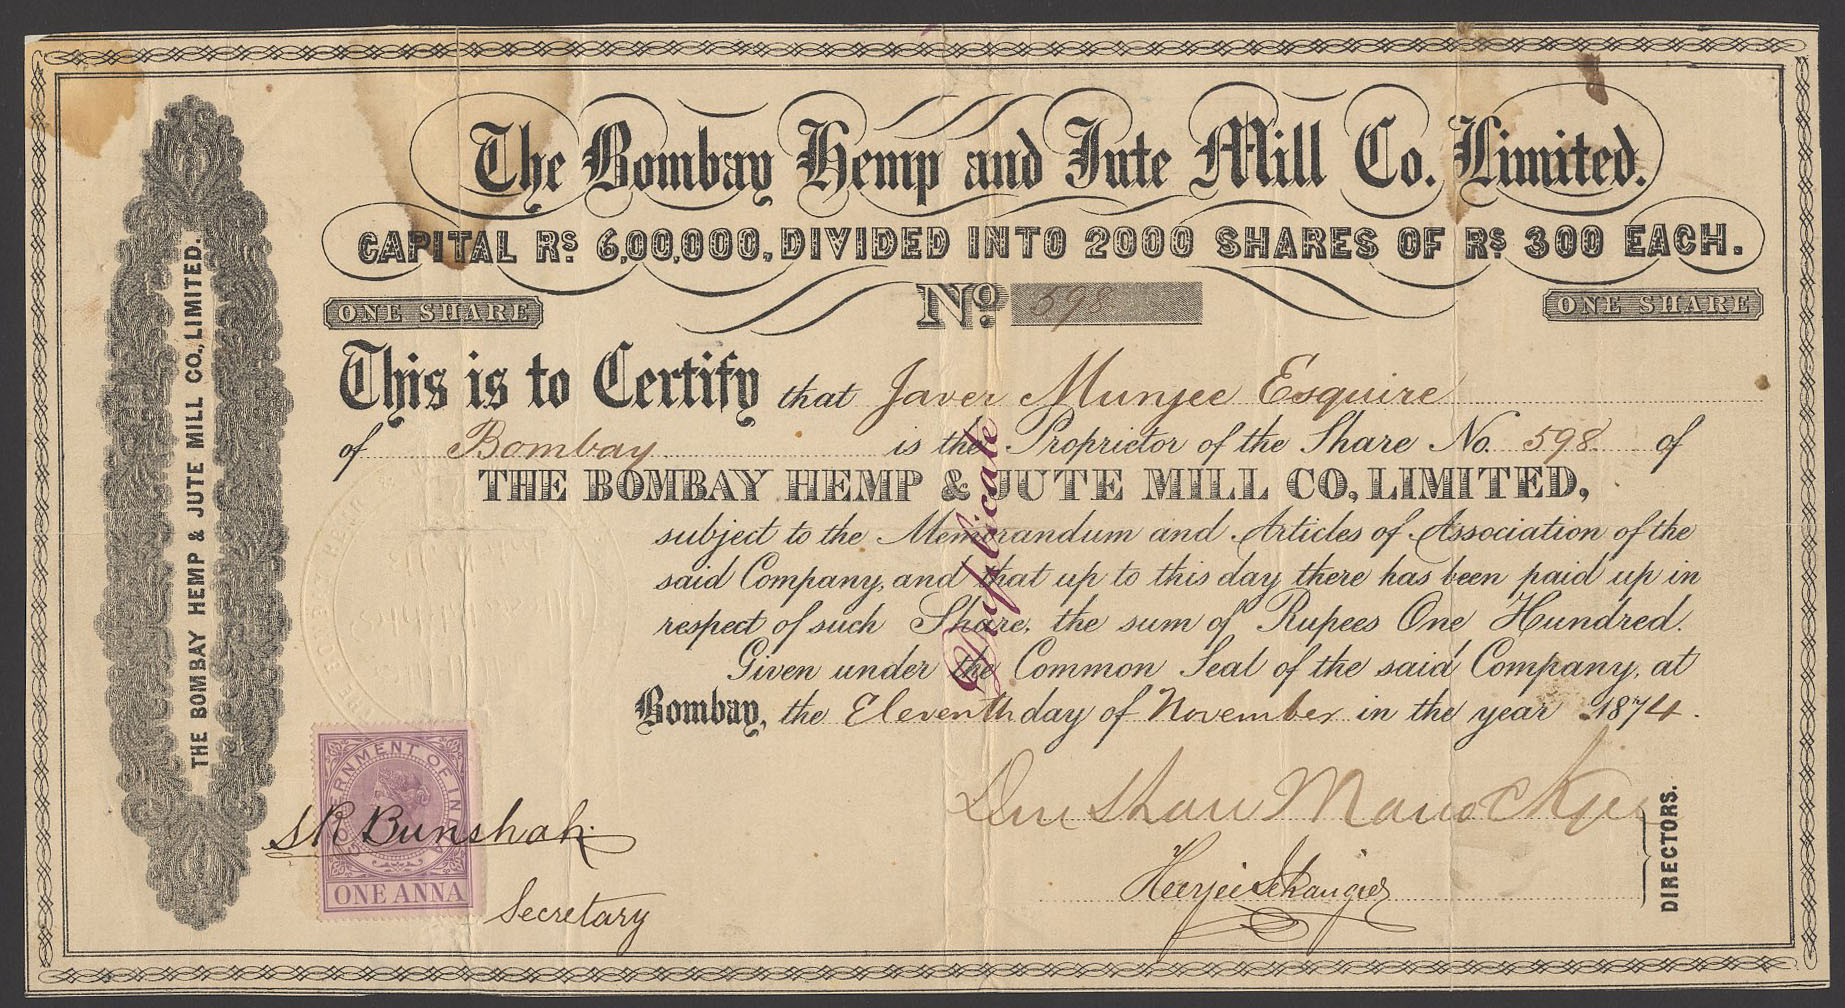 The Bombay Hemp and Jute Mill Co. Limited.
CAPITAL Rs. 6,00,000, DIVIDED INTO 2000 SHARES OF Rs. 300 EACH.
ONE SHARE
No. 598
ONE SHARE
This is to Certify that Javer Munjee Esquire
of Bombay is the Proprietor of the Share No. 598 of
THE BOMBAY HEMP & JUTE MILL CO, LIMITED,
subject to the Memorandum and Articles of Association of the
said Company, and that up to this day there has been paid up in
respect of such Share, the sum of Rupees One Hundred.
Given under the Common Seal of the said Company, at
Bombay, the Eleventh day of November in the year 1874.
Duplicate
THE BOMBAY HEMP & JUTE MILL CO., LIMITED.
GOVERNMENT OF INDIA
ONE ANNA
S R Bunshah
Secretary
Dinshaw Manockjee
DIRECTORS.